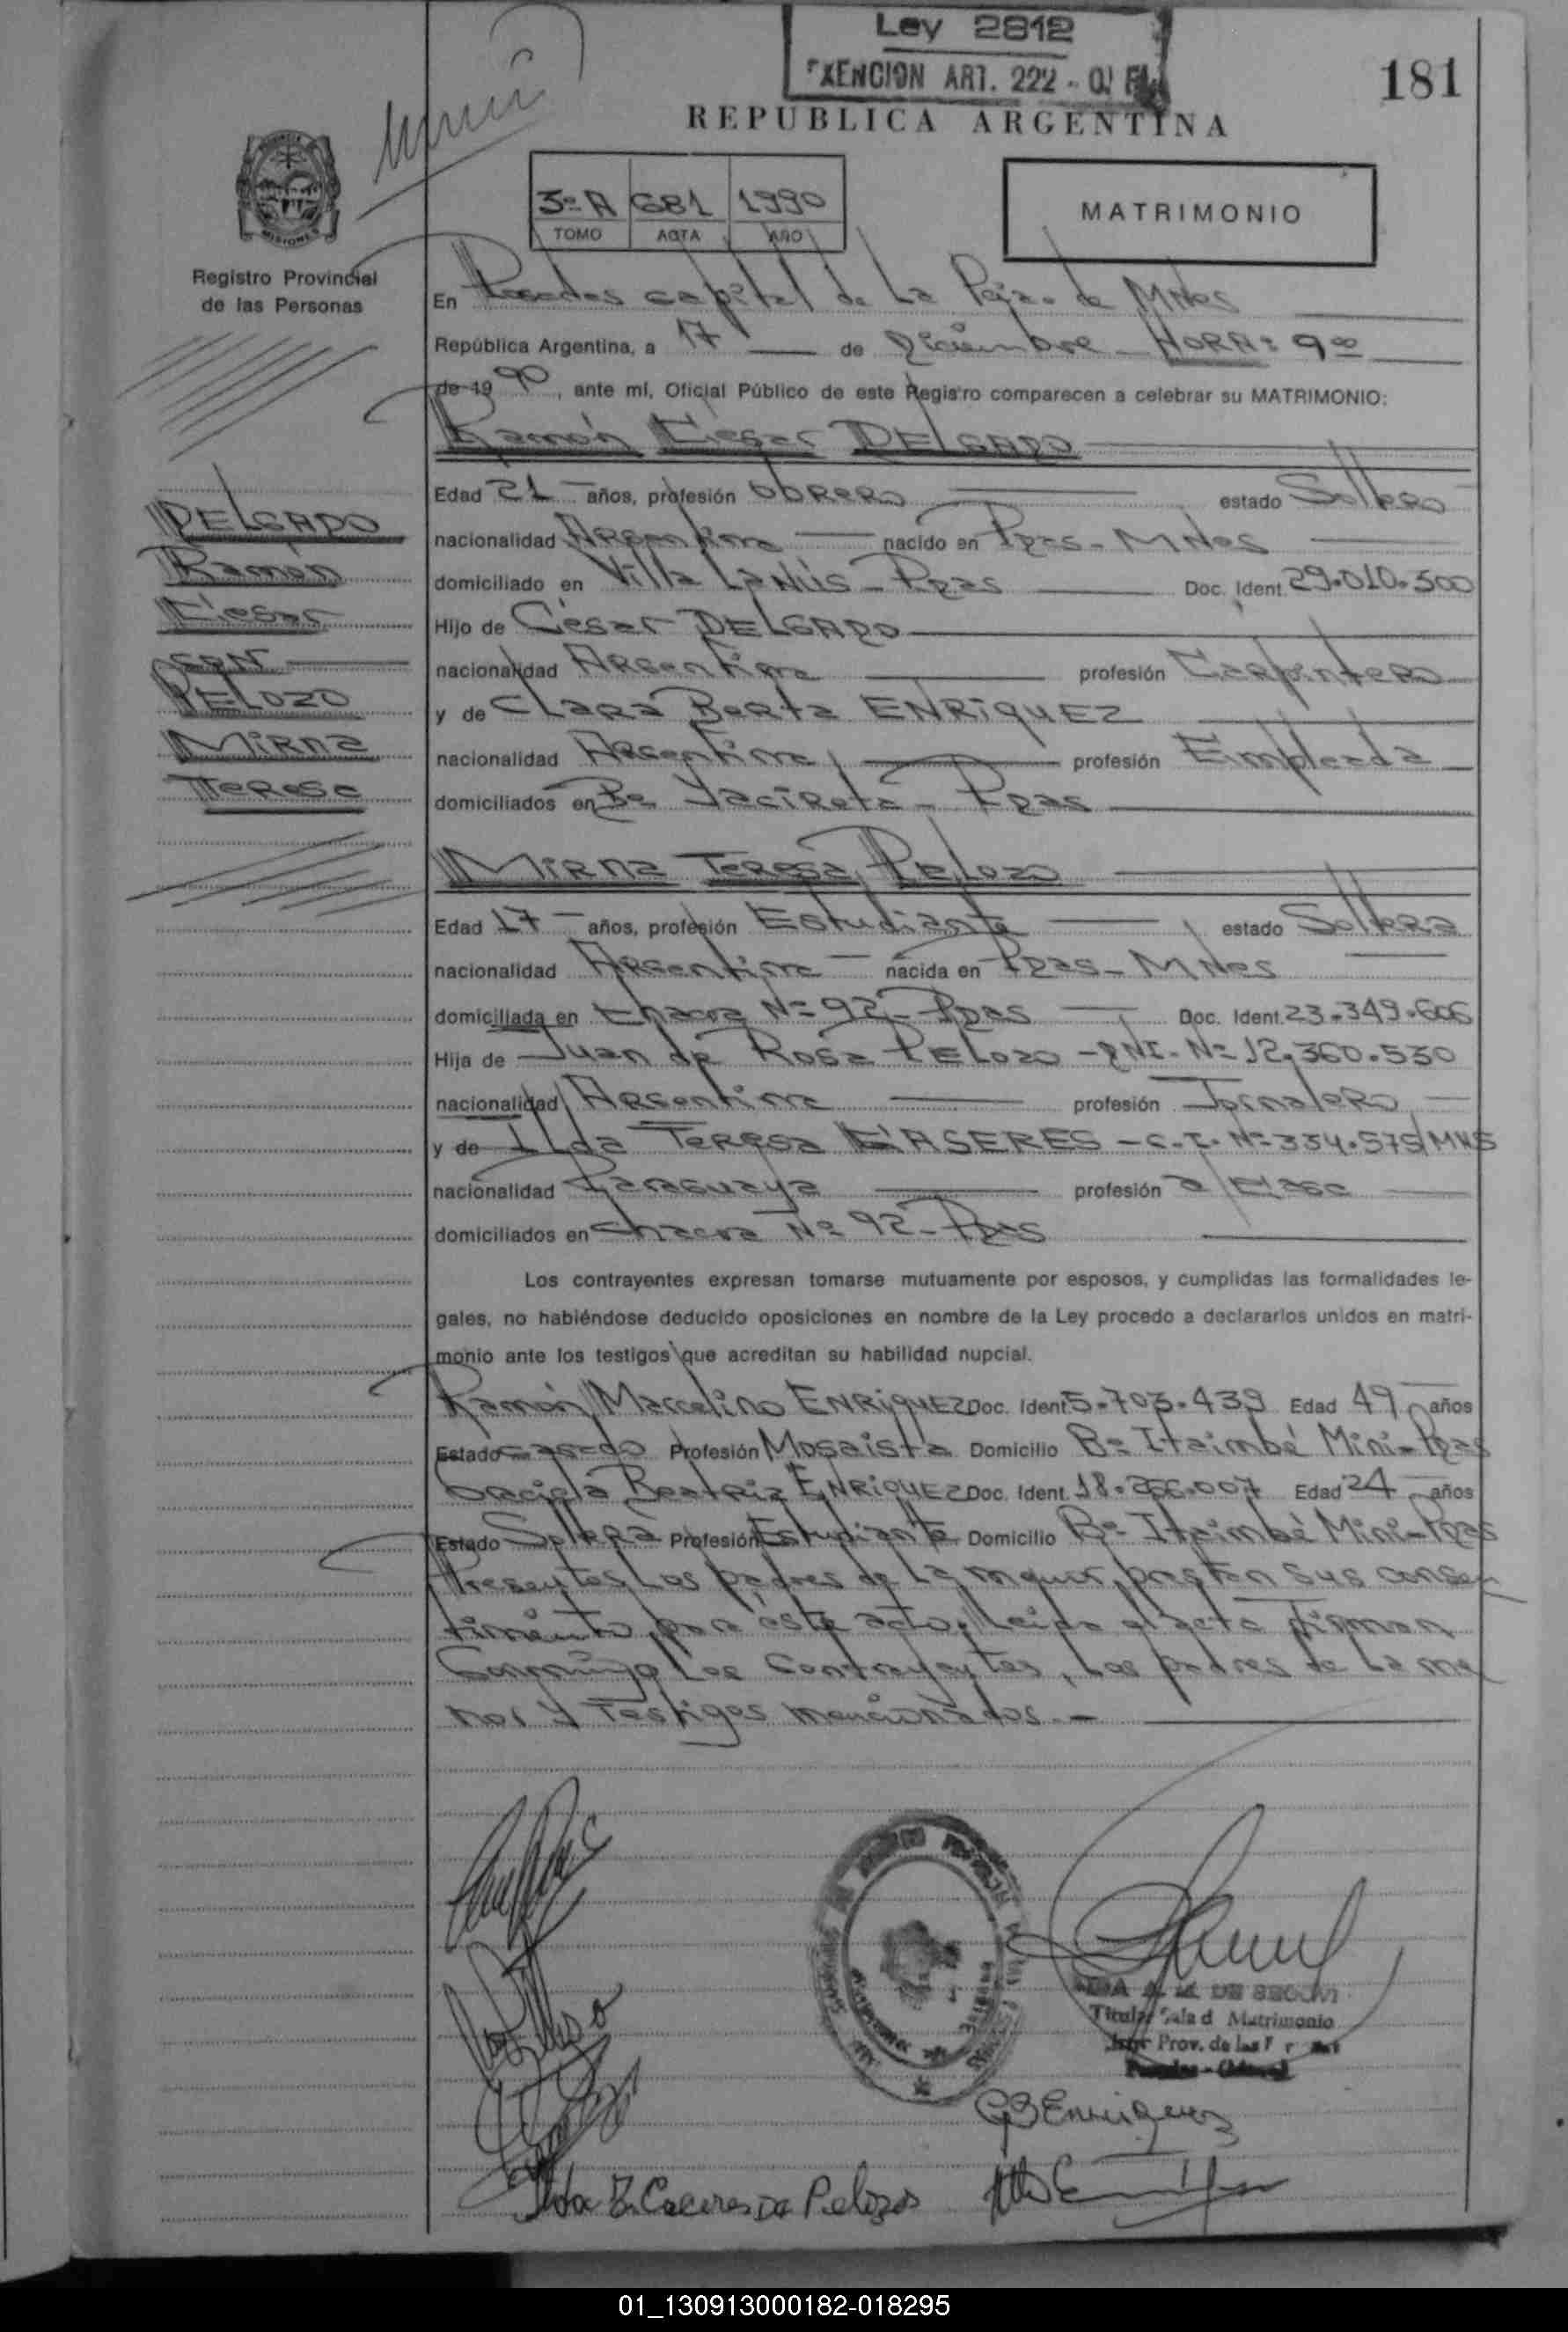 Ley 2812
EXENCION ART. 222 -
181
REPUBLICA ARGENTINA
3º A 681 1990
TOMO ACTA AÑO
MATRIMONIO
MISIONES
Registro Provincial
de las Personas
En Posadas capital de La Pcia. de MNes
República Argentina, a 17 de Diciembre - HORA: 9⁰⁰
de 1990, ante mí, Oficial Público de este Registro comparecen a celebrar su MATRIMONIO:
Ramón César DELGADO
DELGADO
Ramón
César
CON
PELOZO
Mirna
Teresa
Edad 21 años, profesión obrero estado Soltero
nacionalidad Argentina nacido en Pdas - MNes
domiciliado en Villa Lanús - Pdas Doc. Ident. 29.010.500
Hijo de César DELGADO
nacionalidad Argentina profesión Carpintero
y de CLARA Berta ENRIQUEZ
nacionalidad Argentina profesión Empleada
domiciliados en Bº Yaciretá - Pdas
Mirna Teresa Pelozo
Edad 17 años, profesión Estudiante estado Soltera
nacionalidad Argentina nacida en Pdas - MNes
domiciliada en Chacra Nº 92 - Pdas Doc. Ident. 23.349.606
Hija de Juan de Rosa PELOZO - DNI. Nº 12.360.530
nacionalidad Argentina profesión Jornalero
y de Ilda Teresa CASERES - C.I. Nº 334.575/MNS
nacionalidad Paraguaya profesión a/casa
domiciliados en chacra Nº 92 - Pdas
Los contrayentes expresan tomarse mutuamente por esposos, y cumplidas las formalidades le-
gales, no habiéndose deducido oposiciones en nombre de la Ley procedo a declararlos unidos en matri-
monio ante los testigos que acreditan su habilidad nupcial.
Ramón Marcelino ENRIQUEZ Doc. Ident 5.703.439 Edad 49 años
Estado casado Profesión Mosaista Domicilio Bº Itaimbé Mini - Pdas
Graciela Beatriz ENRIQUEZ Doc. Ident. 18.266.007 Edad 24 años
Estado Soltera Profesión Estudiante Domicilio Bº Itaimbé Mini - Pdas
Presentes Los padres de La menor, prestan sus consen
timiento para este acto, Leida el acta firman
Conmigo Los Contrayentes, Los padres de La me
nor y Testigos mencionados.-
DE SEGOVI
Titular Sala d Matrimonio
Prov. de las P
GBEnriquez
Ilda T. Caceres De Pelozo
01_130913000182-018295